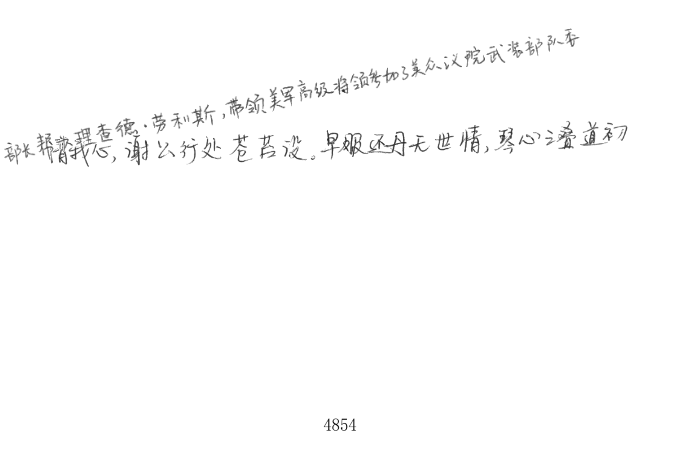 部长帮助理查德·劳利斯，带领美军高级将领参加了美众议院武装部队委
心，谢公行处苍苔没。早服还丹无世情，琴心三叠道初
4854